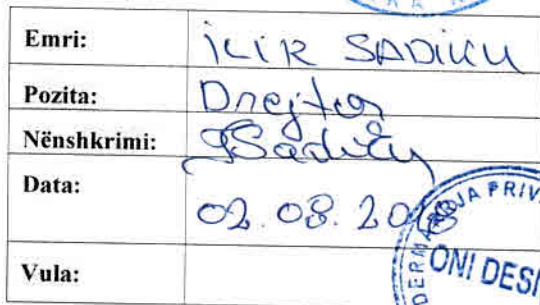 Emri: ILIR SADIKU
Pozita: Drejtor
Nënshkrimi: ISadiku
Data: 02.08.2018
Vula:
ONI DESI